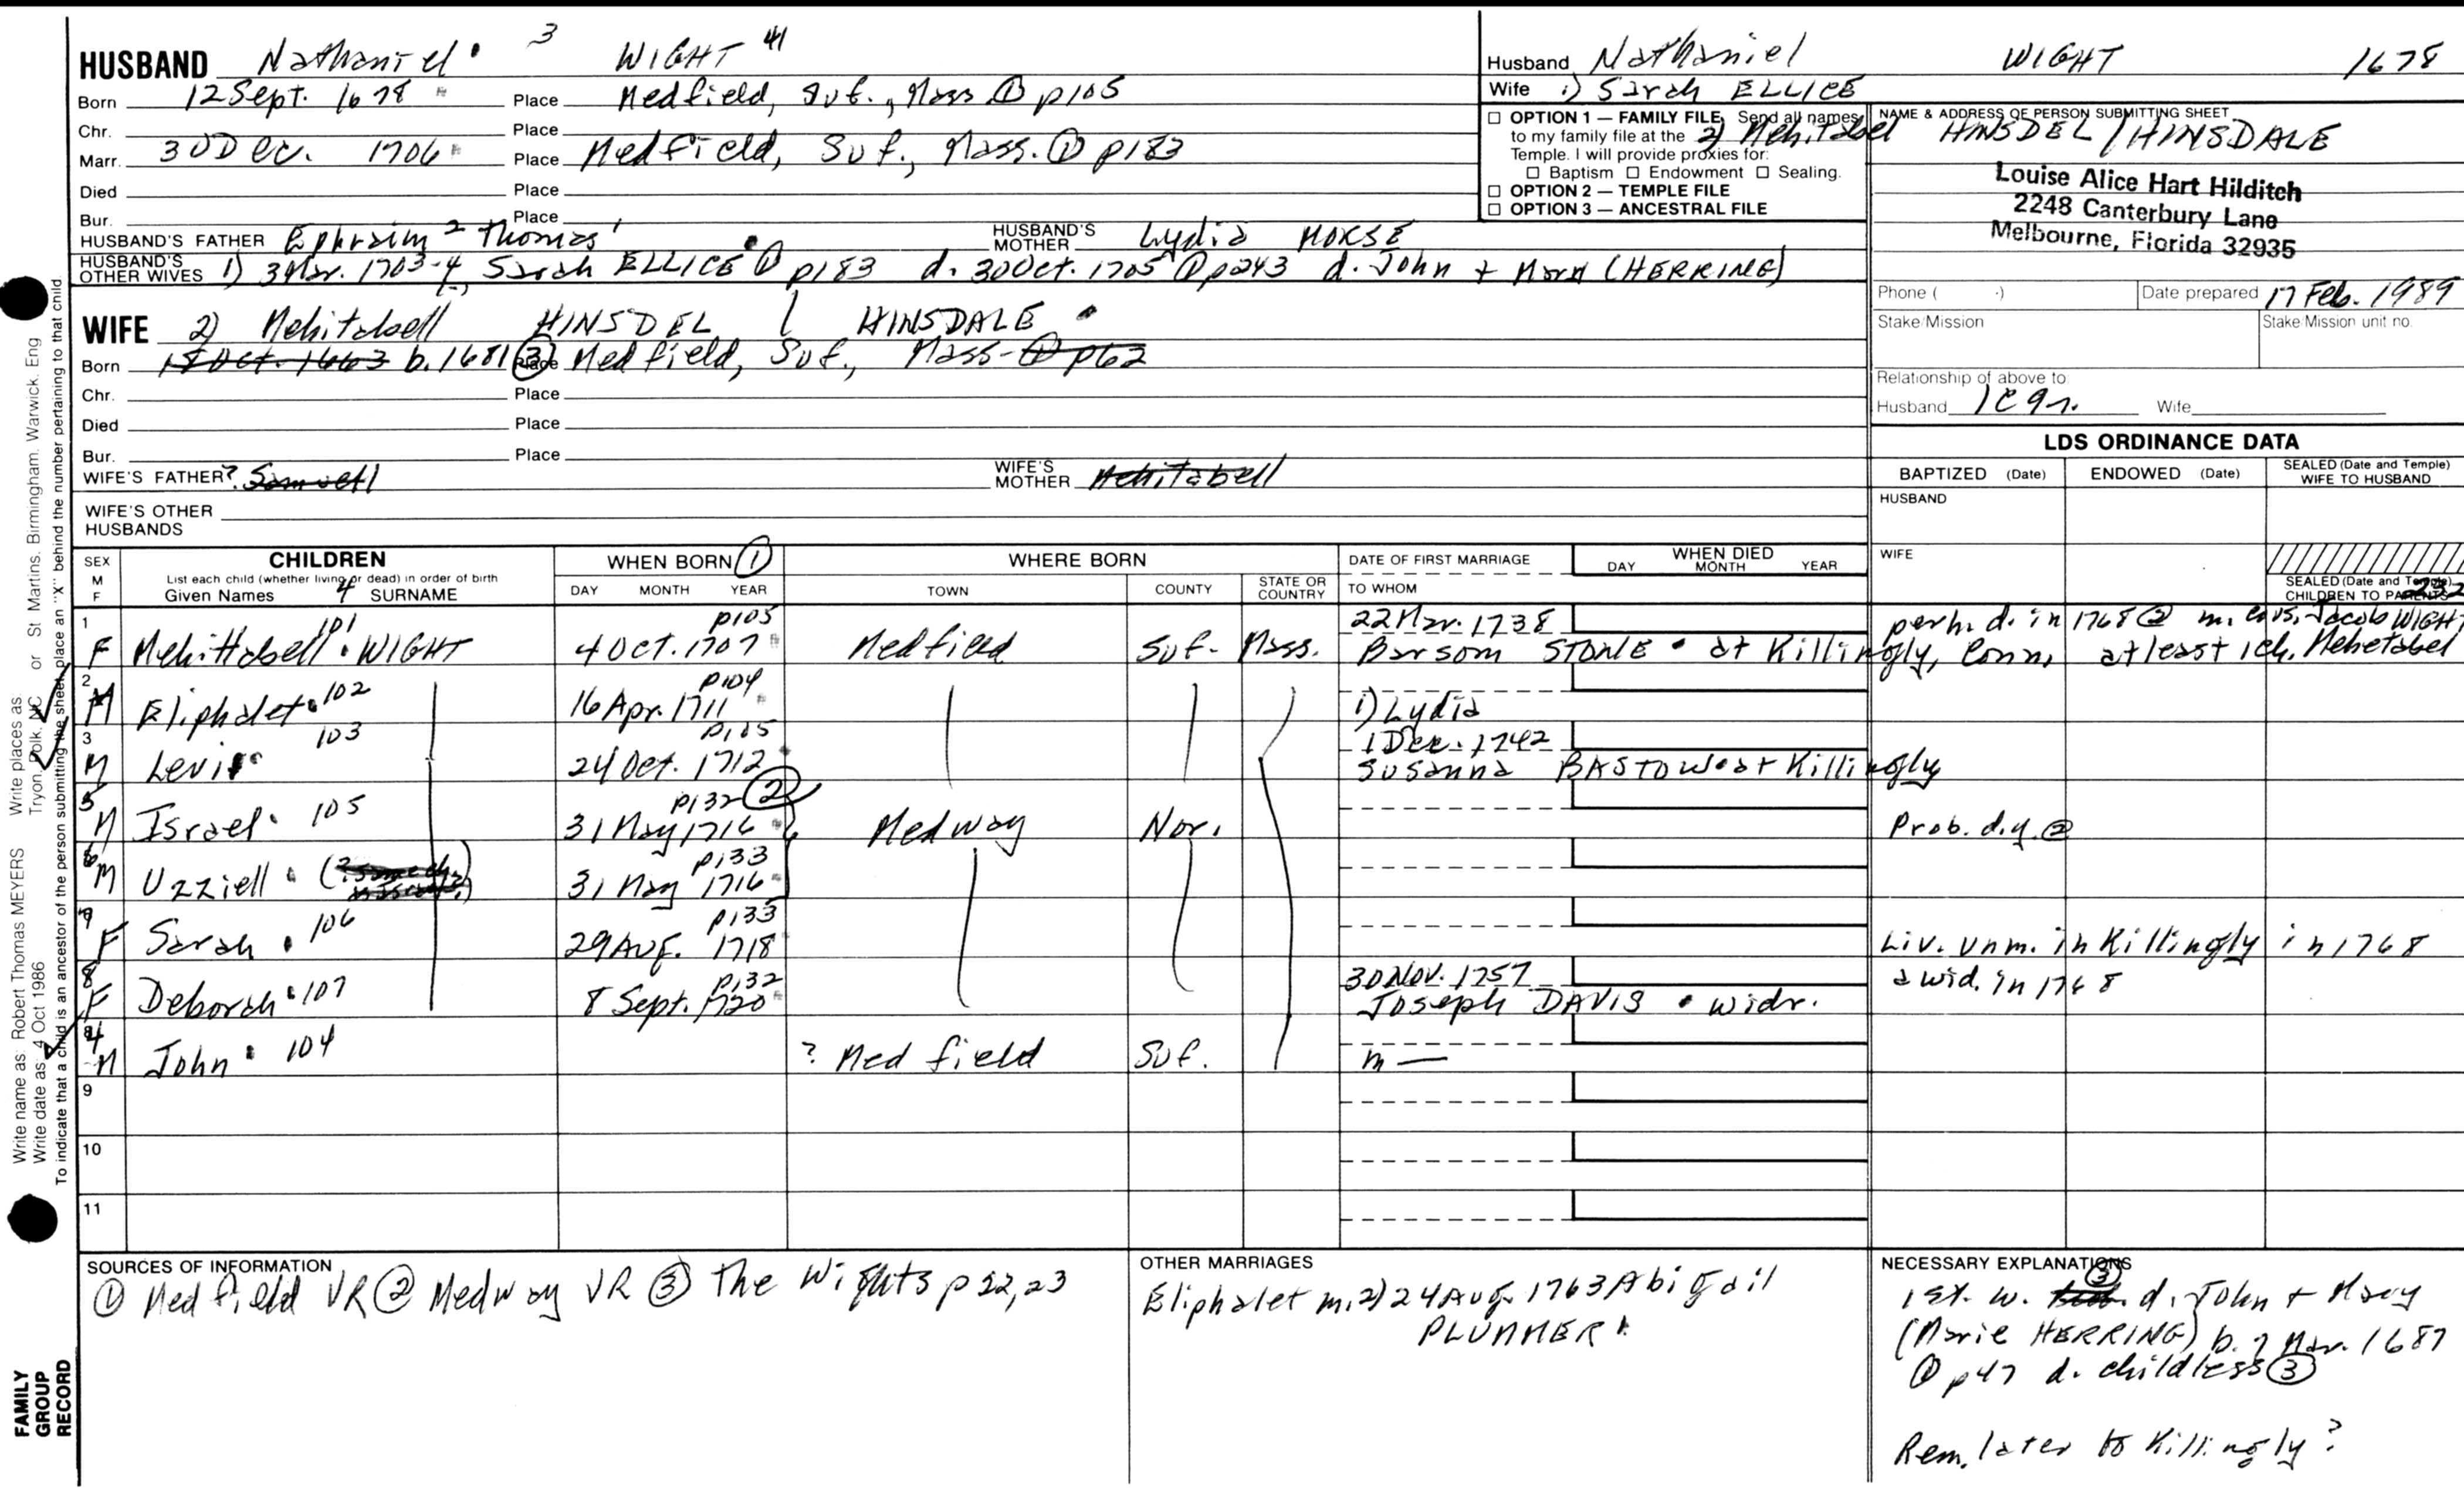 HUSBAND Nathaniel 3 WIGHT 41
Born 12 Sept. 1678 Place Medfield, Suf., Mass ① p105
Chr. Place
Marr. 30 Dec. 1706 Place Medfield, Suf., Mass. ① p183
Died Place
Bur. Place
HUSBAND'S FATHER Ephraim 2 Thomas 1 HUSBAND'S MOTHER Lydia MORSE
HUSBAND'S OTHER WIVES 1) 3 Mar. 1703-4, Sarah ELLICE ① p183 d. 30 Oct. 1705 ① p243 d. John + Mary (HERRING)
WIFE 2) Mehitabell HINSDEL / HINSDALE
Born 18 Oct. 1663 b. 1681 ③ Place Medfield, Suf., Mass-① p62
Chr. Place
Died Place
Bur. Place
WIFE'S FATHER ? Samuell WIFE'S MOTHER Mehitabell
WIFE'S OTHER HUSBANDS
Husband Nathaniel WIGHT 1678
Wife 1) Sarah ELLICE
2) Mehitabel HINSDEL / HINSDALE
☐ OPTION 1 — FAMILY FILE. Send all names
to my family file at the
Temple. I will provide proxies for:
☐ Baptism ☐ Endowment ☐ Sealing.
☐ OPTION 2 — TEMPLE FILE
☐ OPTION 3 — ANCESTRAL FILE
NAME & ADDRESS OF PERSON SUBMITTING SHEET
Louise Alice Hart Hilditch
2248 Canterbury Lane
Melbourne, Florida 32935
Phone ( ) Date prepared 17 Feb. 1989
Stake/Mission Stake/Mission unit no.
Relationship of above to:
Husband 1c9r. Wife
LDS ORDINANCE DATA
BAPTIZED (Date) ENDOWED (Date) SEALED (Date and Temple) WIFE TO HUSBAND
HUSBAND
WIFE
SEALED (Date and Temple) CHILDREN TO PARENTS
232
SEX M F CHILDREN List each child (whether living or dead) in order of birth Given Names 4 SURNAME
WHEN BORN ① DAY MONTH YEAR
WHERE BORN TOWN COUNTY STATE OR COUNTRY
DATE OF FIRST MARRIAGE TO WHOM
WHEN DIED DAY MONTH YEAR
1 101 p105 22 Mar. 1738 perh. d. in 1768 ② m. cous. Jacob WIGHT
F Mehittabell WIGHT 4 Oct. 1707 Medfield Suf. Mass. Barsom STONE at Killingly, Conn. at least 1 ch. Mehetabel
2 102 p104
M Eliphalet 16 Apr. 1711 1) Lydia
3 103 p105 1 Dec. 1742
M Levi 24 Oct. 1712 Susanna BASTOW at Killingly
5 105 p132 ②
M Israel 31 May 1716 Medway Nor. Prob. d.y. ②
6 p133
M Uzziell 31 May 1716
7 106 p133
F Sarah 29 Aug. 1718 Liv. unm. in Killingly in 1768
8 107 p132 30 Nov. 1757 a wid. in 1768
F Deborah 8 Sept. 1720 Joseph DAVIS widr.
4 104
M John ? Medfield Suf. m —
9
10
11
SOURCES OF INFORMATION
① Medfield VR ② Medway VR ③ The Wights p 22, 23
OTHER MARRIAGES
Eliphalet m. 2) 24 Aug. 1763 Abigail
PLUMMER
NECESSARY EXPLANATIONS
③
1st. w. d. John + Mary
(Marie HERRING) b. 7 Mar. 1687
① p47 d. childless ③
Rem. later to Killingly?
Write name as: Robert Thomas MEYERS Write places as: Tryon, Polk, NC or St Martins, Birmingham, Warwick, Eng
Write date as: 4 Oct 1986
To indicate that a child is an ancestor of the person submitting the sheet, place an "X" behind the number pertaining to that child.
FAMILY
GROUP
RECORD